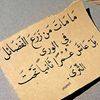 ما مات من زرع الفضائل
في الورى
بل عاش عمرا ثانيا تحت
الثرى